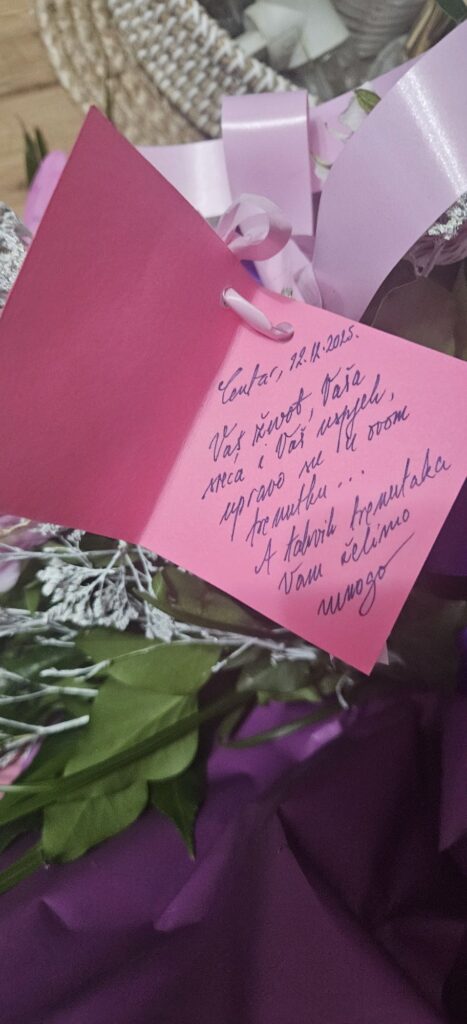 Centar, 12.12.2025.
Vaš život, Vaša
sreća i Vaš uspjeh,
upravo su u ovom
trenutku...
A takvih trenutaka
Vam želimo
mnogo